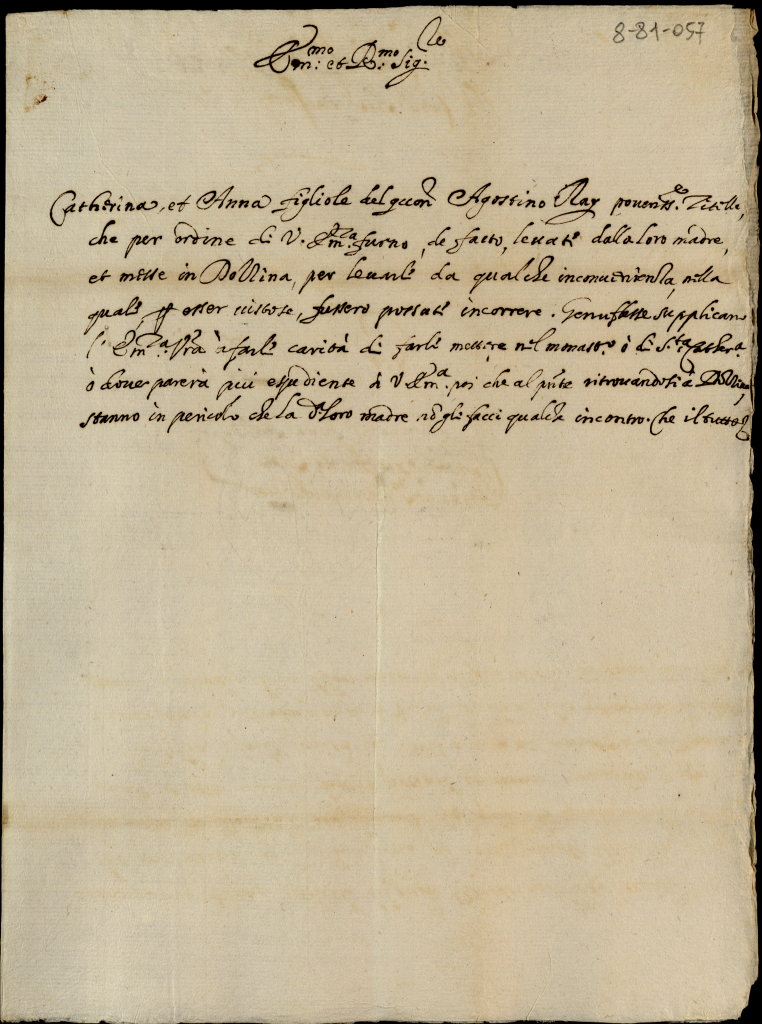 8-81-057
Em:mo et R:mo Sig:re
Catherina, et Anna figliole del qcon Agostino Ray poveriss:e Zitelle,
che per ordine di V. Em:za furno, de facto, levate dalla loro madre,
et messe in Dollina, per levarle da qualche inconvenienza, nella
quale, p esser vistose, fussero possute incorrere. Genuflesse supplicano
l'Em:za Vra à farle carità di farle mettere nel monast:o ò di S:ta Cather:a
ò dove parerà più espediente à V Em:a poi che al pnte ritrovandosi à Dollina
stanno in pericolo che la d:a loro madre nō gli facci qualche incontro. Che il tutto